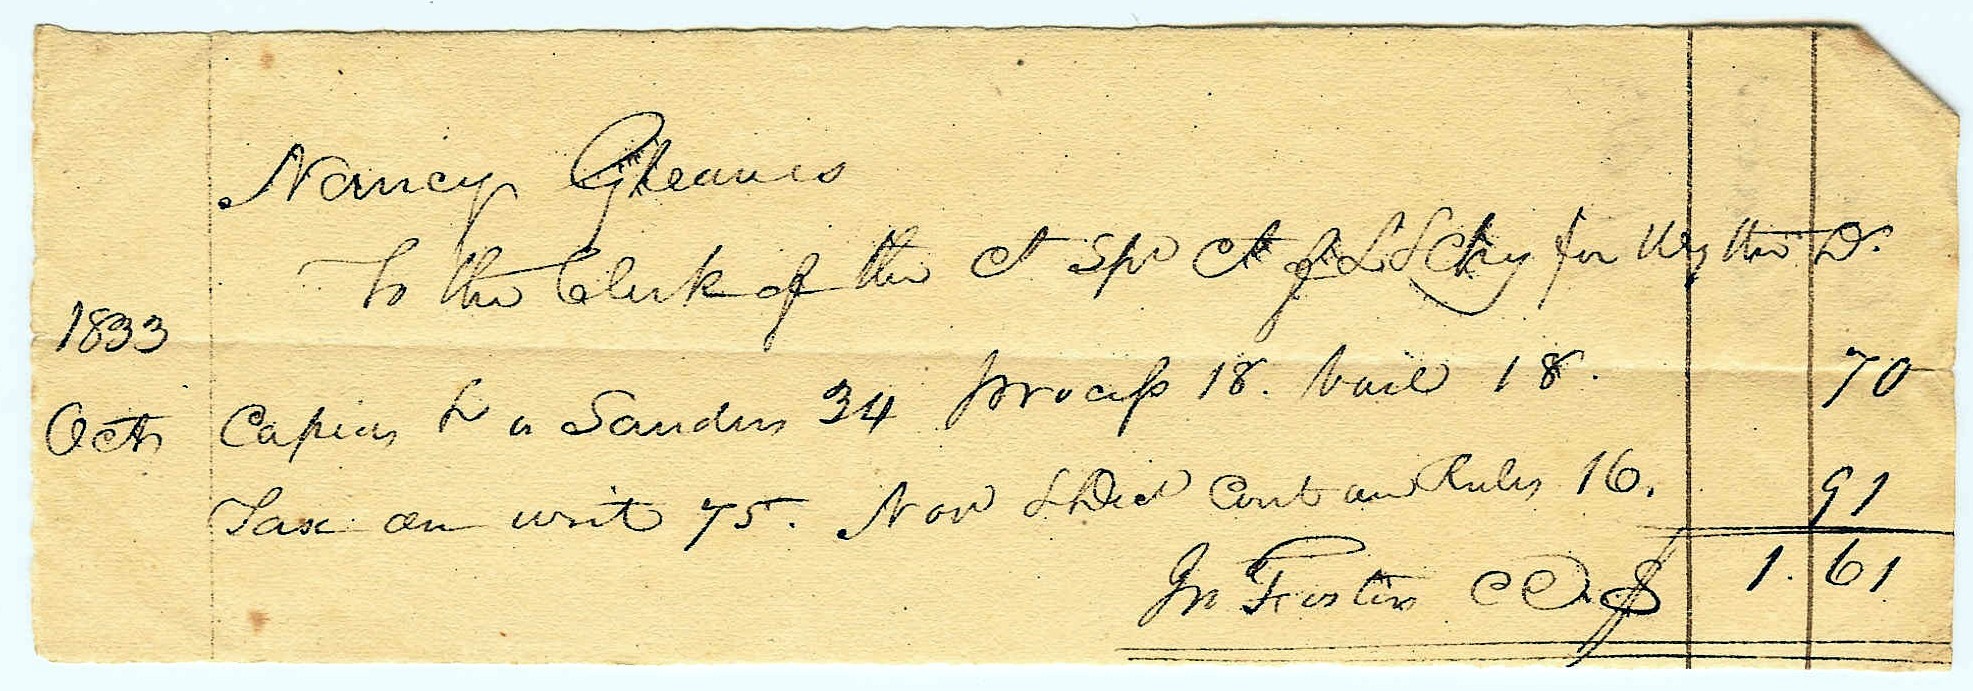 Nancy Gleaves
To the Clerk of the Ct Spr Ct of L & Chy for Wythe Dr
1833
Octr Capias v Sanders 34 process 18. bail 18. 70
Tax on writ 75. Novr & Decr Cont an Rules 16. 91
Jn Foster CC $ 1.61